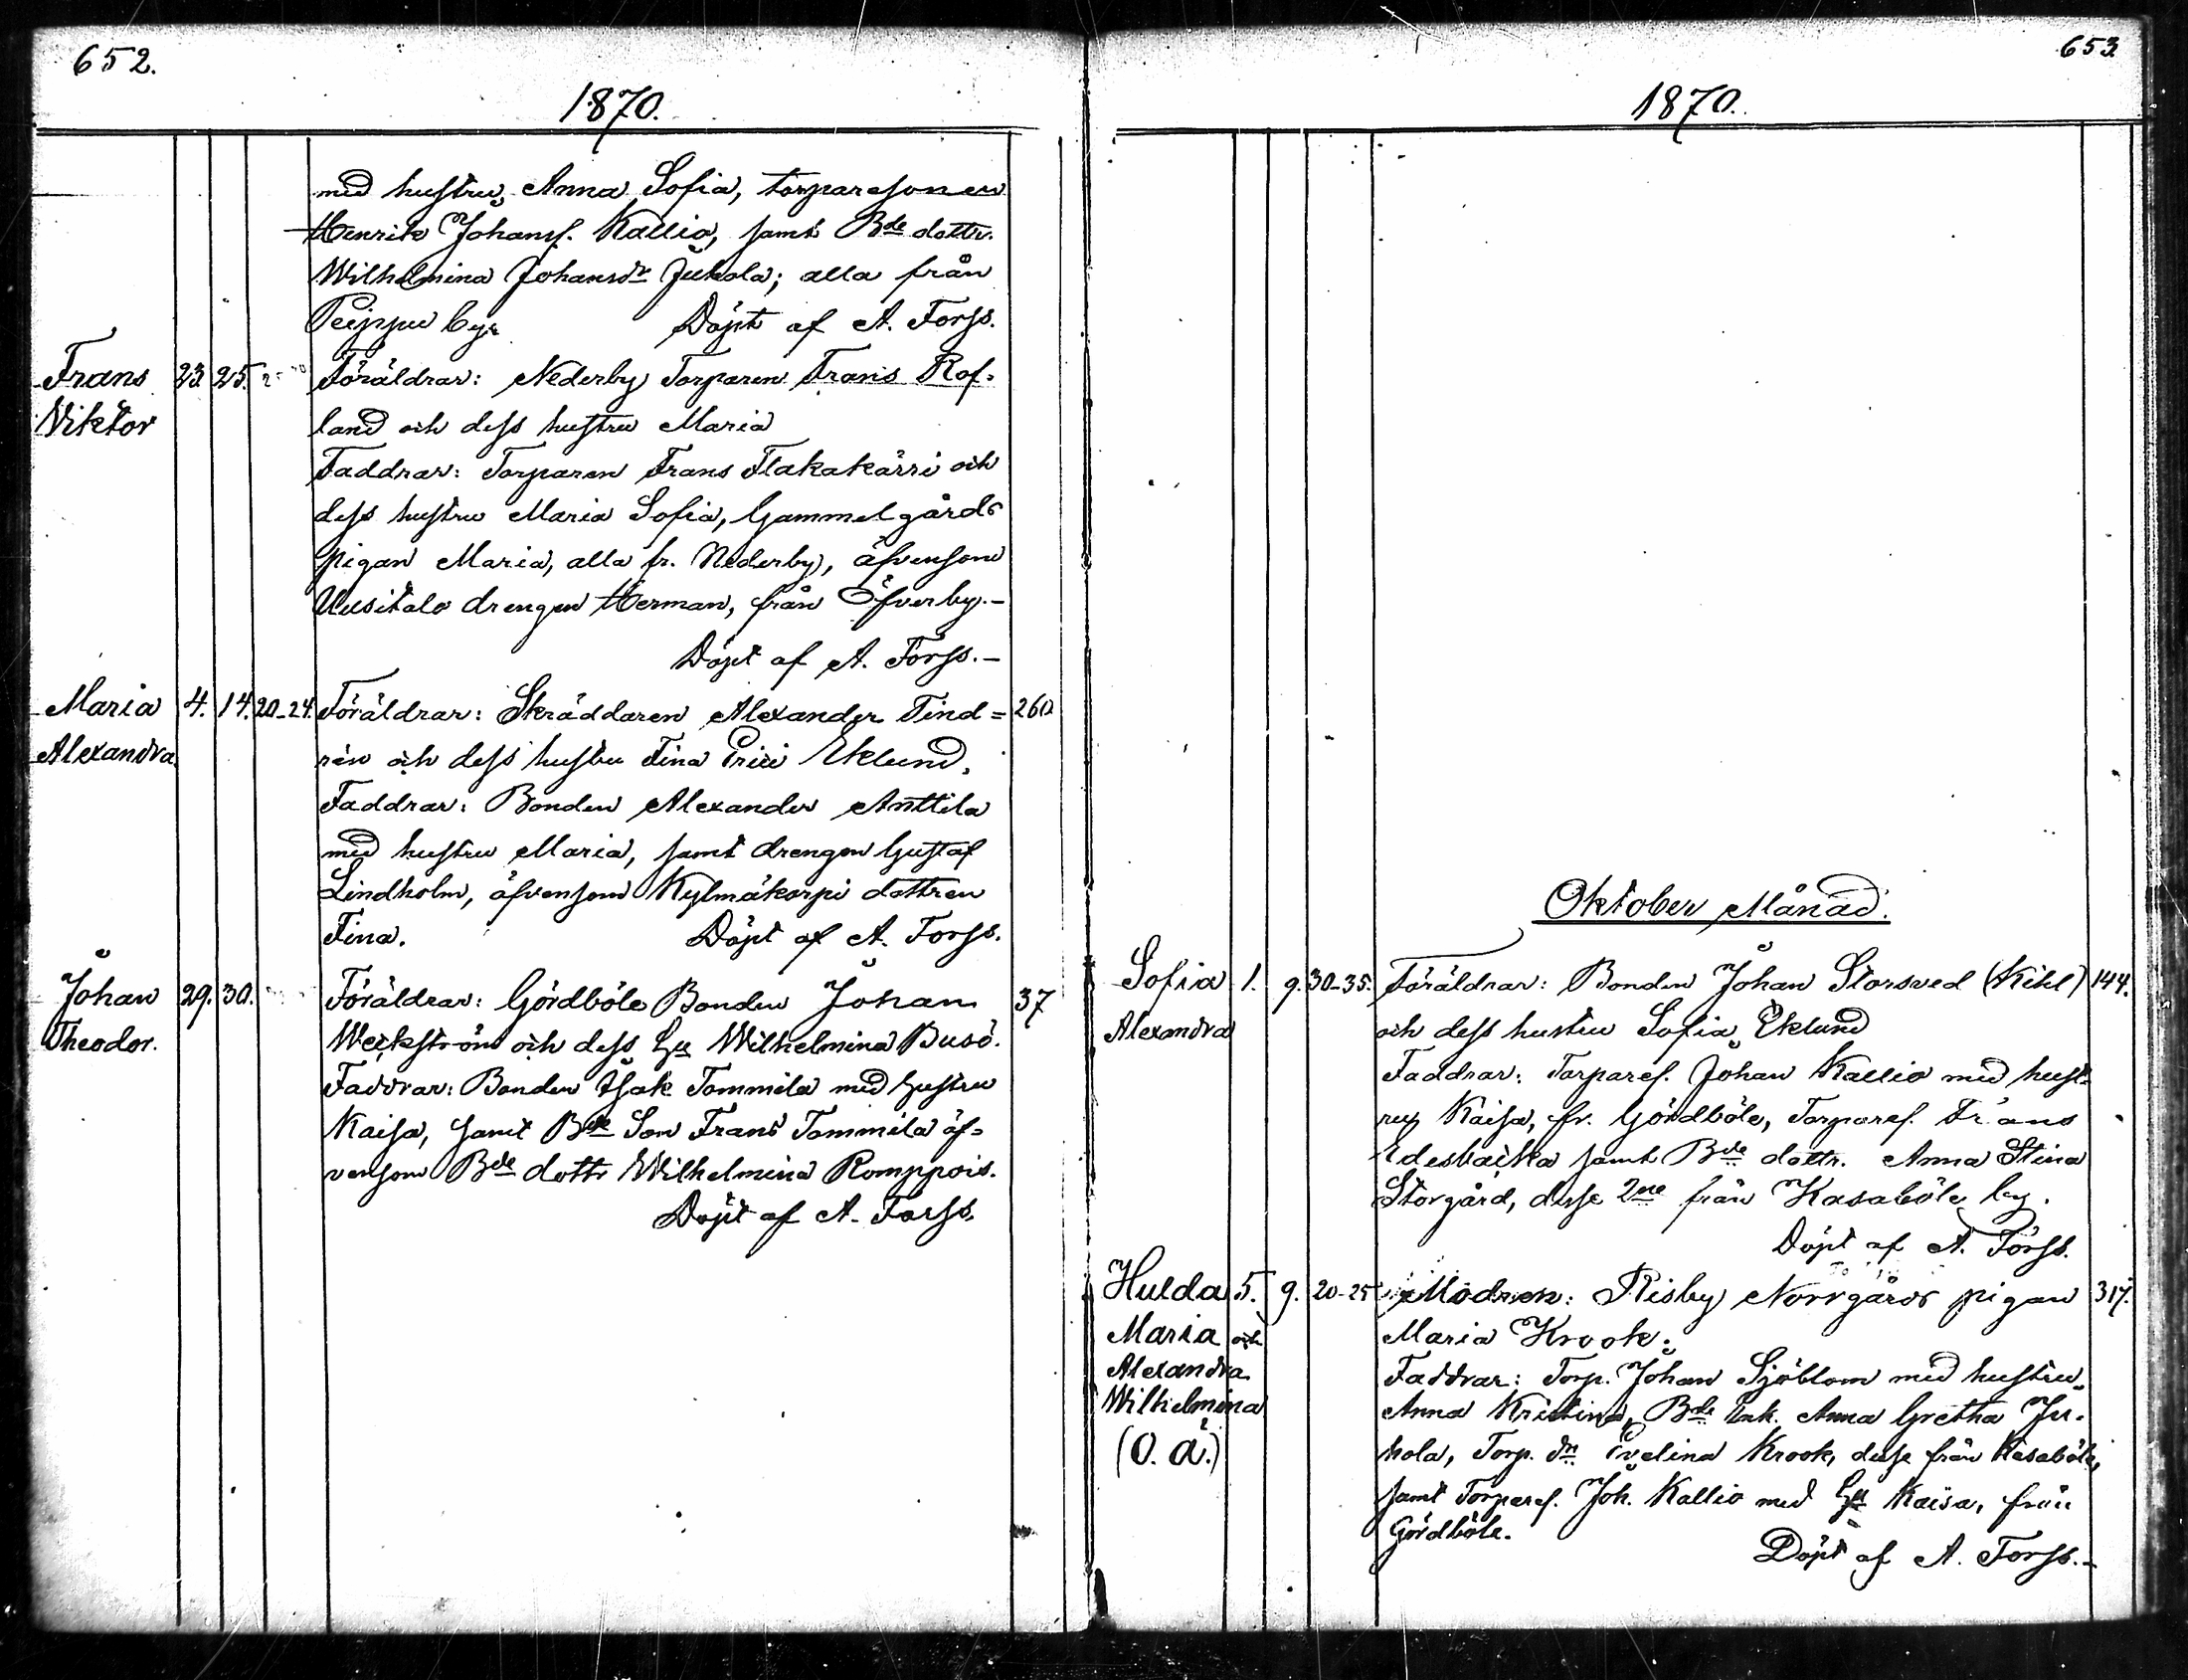 652.
1870.
med hustru Anna Sofia, torparesonen
Henrik Johanss. Kallio, samt Bde dottr.
Wilhelmina Johansdr Juhola; alla från
Peippu by. Döpt af A. Forss.
Frans 23. 25. Föräldrar: Nederby Torparen Frans Rof-
Viktor land och dess hustru Maria
Faddrar: Torparen Frans Flakakärri och
dess hustru Maria Sofia, Gammelgårds
pigan Maria, alla fr. Nederby, äfvensom
Uusitalo drengen Herman, från Öfverby.-
Döpt af A. Forss.-
Maria 4. 14. 20-24. Föräldrar: Skräddaren Alexander Tind= 260
Alexandra rén och dess hustru Fina Eklund.
Faddrar: Bonden Alexander Anttila
med hustru Maria, samt drengen Gustaf
Lindholm, äfvensom Kylmäkorpi dottren
Fina. Döpt af A. Forss.
Johan 29. 30. Föräldrar: Gördböle Bonden Johan 37
Theodor. Weckström och dess Hu Wilhelmina Busö.
Faddrar: Bonden Isak Tommila med hustru
Kaisa, samt Bde Son Frans Tommila äf-
vensom Bde dottr Wilhelmina Romppois.
Döpt af A. Forss.
653
1870.
Oktober Månad.
Sofia 1. 9. 30-35. Föräldrar: Bonden Johan Storsved (Kihl) 144.
Alexandra och dess hustru Sofia Eklund
Faddrar: Torpares. Johan Kallio med hust-
ru Kaisa, fr. Gördböle, Torpares. Frans
samt Bde dottr. Anna Stina
Storgård, desse 2ne från Kasaböle by.
Döpt af A. Forss.
Hulda 5. 9. 20-25 Modren: Risby Norrgårds pigan 317.
Maria och Maria Krook.
Alexandra Faddrar: Torp. Johan Sjöblom med hustru
Wilhelmina Anna Kristina, Bde Enk. Anna Gretha Ju-
(O. Ä.) hola, Torp. dr Evelina Krook, desse från Kasaböle,
samt Torpares. Joh. Kallio med Hu Kaisa, från
Gördböle. Döpt af A. Forss.-